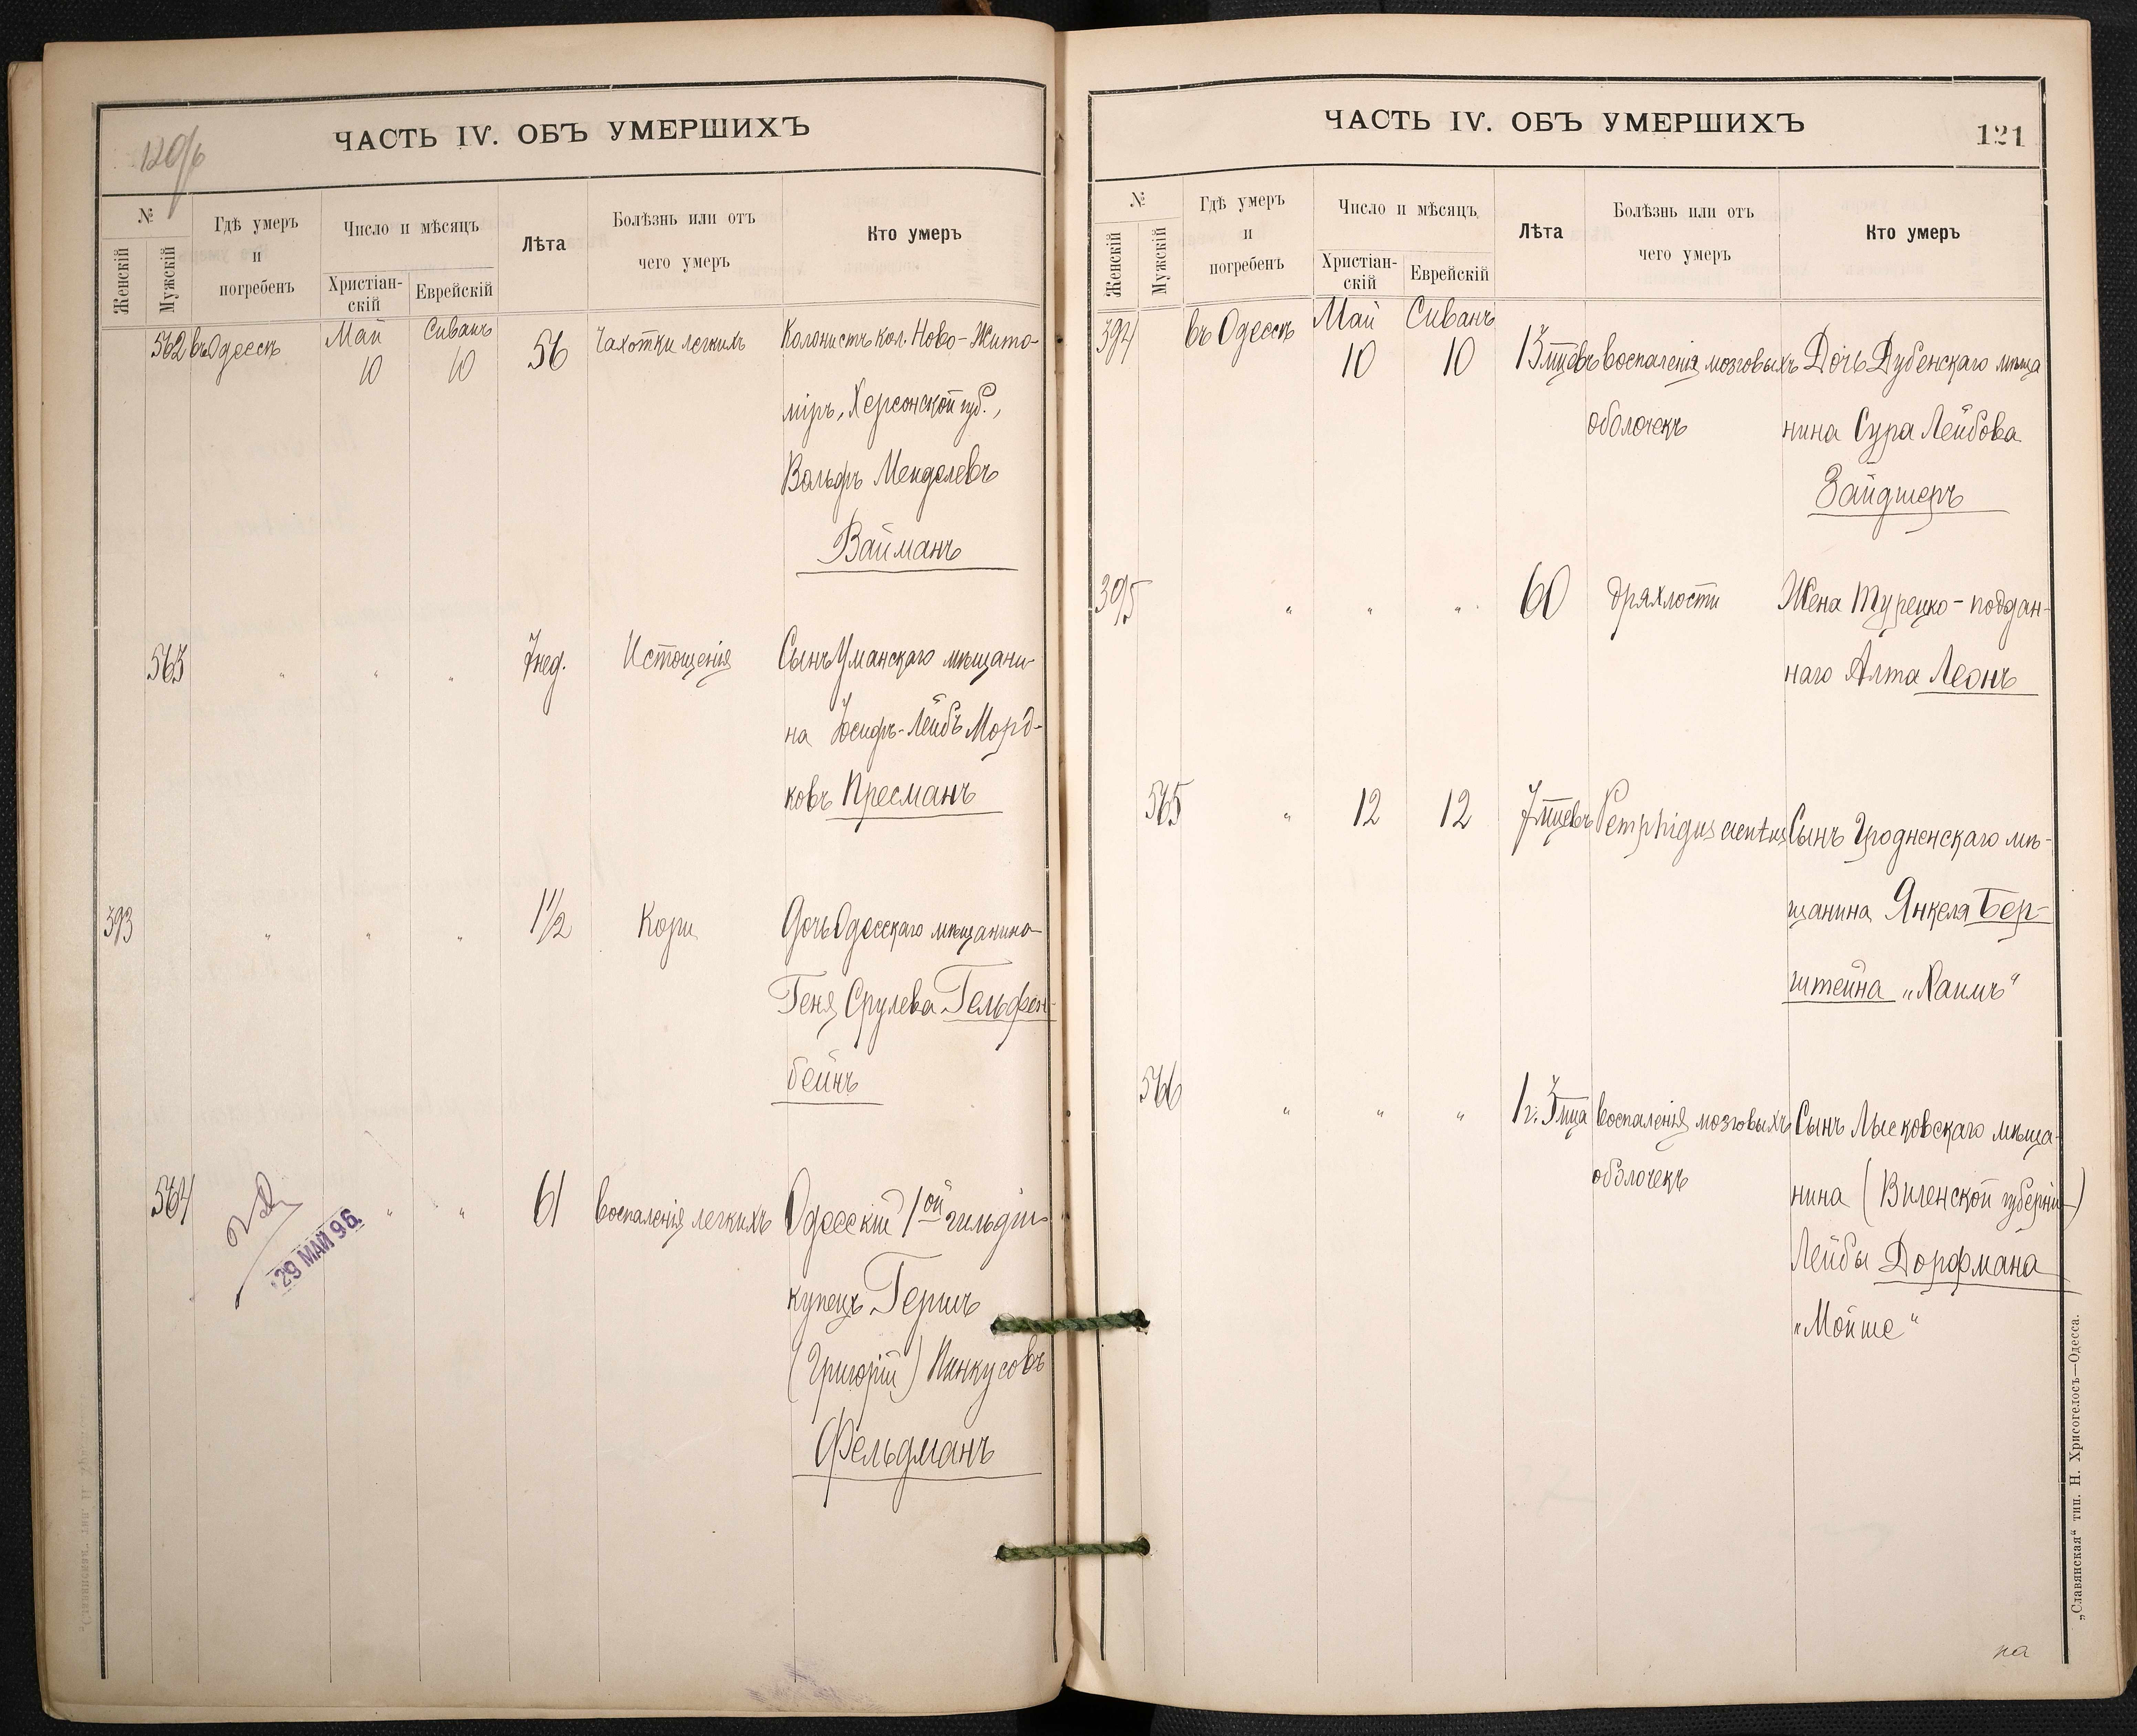 120/б
ЧАСТЬ IV. ОБЪ УМЕРШИХЪ
№
Женскій
Мужскій
Гдѣ умеръ
и
погребенъ
Число и мѣсяцъ
Христіан-
скій
Еврейскій
Лѣта
Болѣзнь или отъ
чего умеръ
Кто умеръ
562 въ Одессѣ Май 10 Сиванъ 10 56 Чахотки легкихъ Колонистъ кол. Ново-Жито-
міръ, Херсонской губ.,
Вольфъ Менделевъ
Вайманъ
563 " " " 7 нед. Истощенія Сынъ Уманскаго мѣщани-
на Іосифъ-Лейбъ Морд-
ковъ Пресманъ
393 " " " 1½ Кори Дочь Одесскаго мѣщанина
Геня Срулева Гельфен-
бейнъ
564 " " 61 воспаленія легкихъ Одесскій 1ой гильдіи
купецъ Гершъ
(Григорій) Пинкусовъ
Фельдманъ
29 МАЙ 96.
ЧАСТЬ IV. ОБЪ УМЕРШИХЪ
121
№
Женскій
Мужскій
Гдѣ умеръ
и
погребенъ
Число и мѣсяцъ
Христіан-
скій
Еврейскій
Лѣта
Болѣзнь или отъ
чего умеръ
Кто умеръ
394 въ Одессѣ Май 10 Сиванъ 10 13 мцевъ воспаленія мозговыхъ Дочь Дубенскаго мѣща
оболочекъ нина Сура Лейбова
Зайдшеръ
395 " " " 60 дряхлости Жена Турецко-поддан-
наго Алта Леонъ
565 " 12 12 7 мцевъ Pemphigus Сынъ Гродненскаго мѣ-
щанина Янкеля Бер-
штейна „Хаимъ“
566 " " " 1 г. 3 мца воспаленія мозговыхъ Сынъ Лысковскаго мѣща-
оболочекъ нина (Виленской губерніи)
Лейбы Дорфмана
„Мойше“
„Славянская“ тип. Н. Хрисогелосъ—Одесса.
на